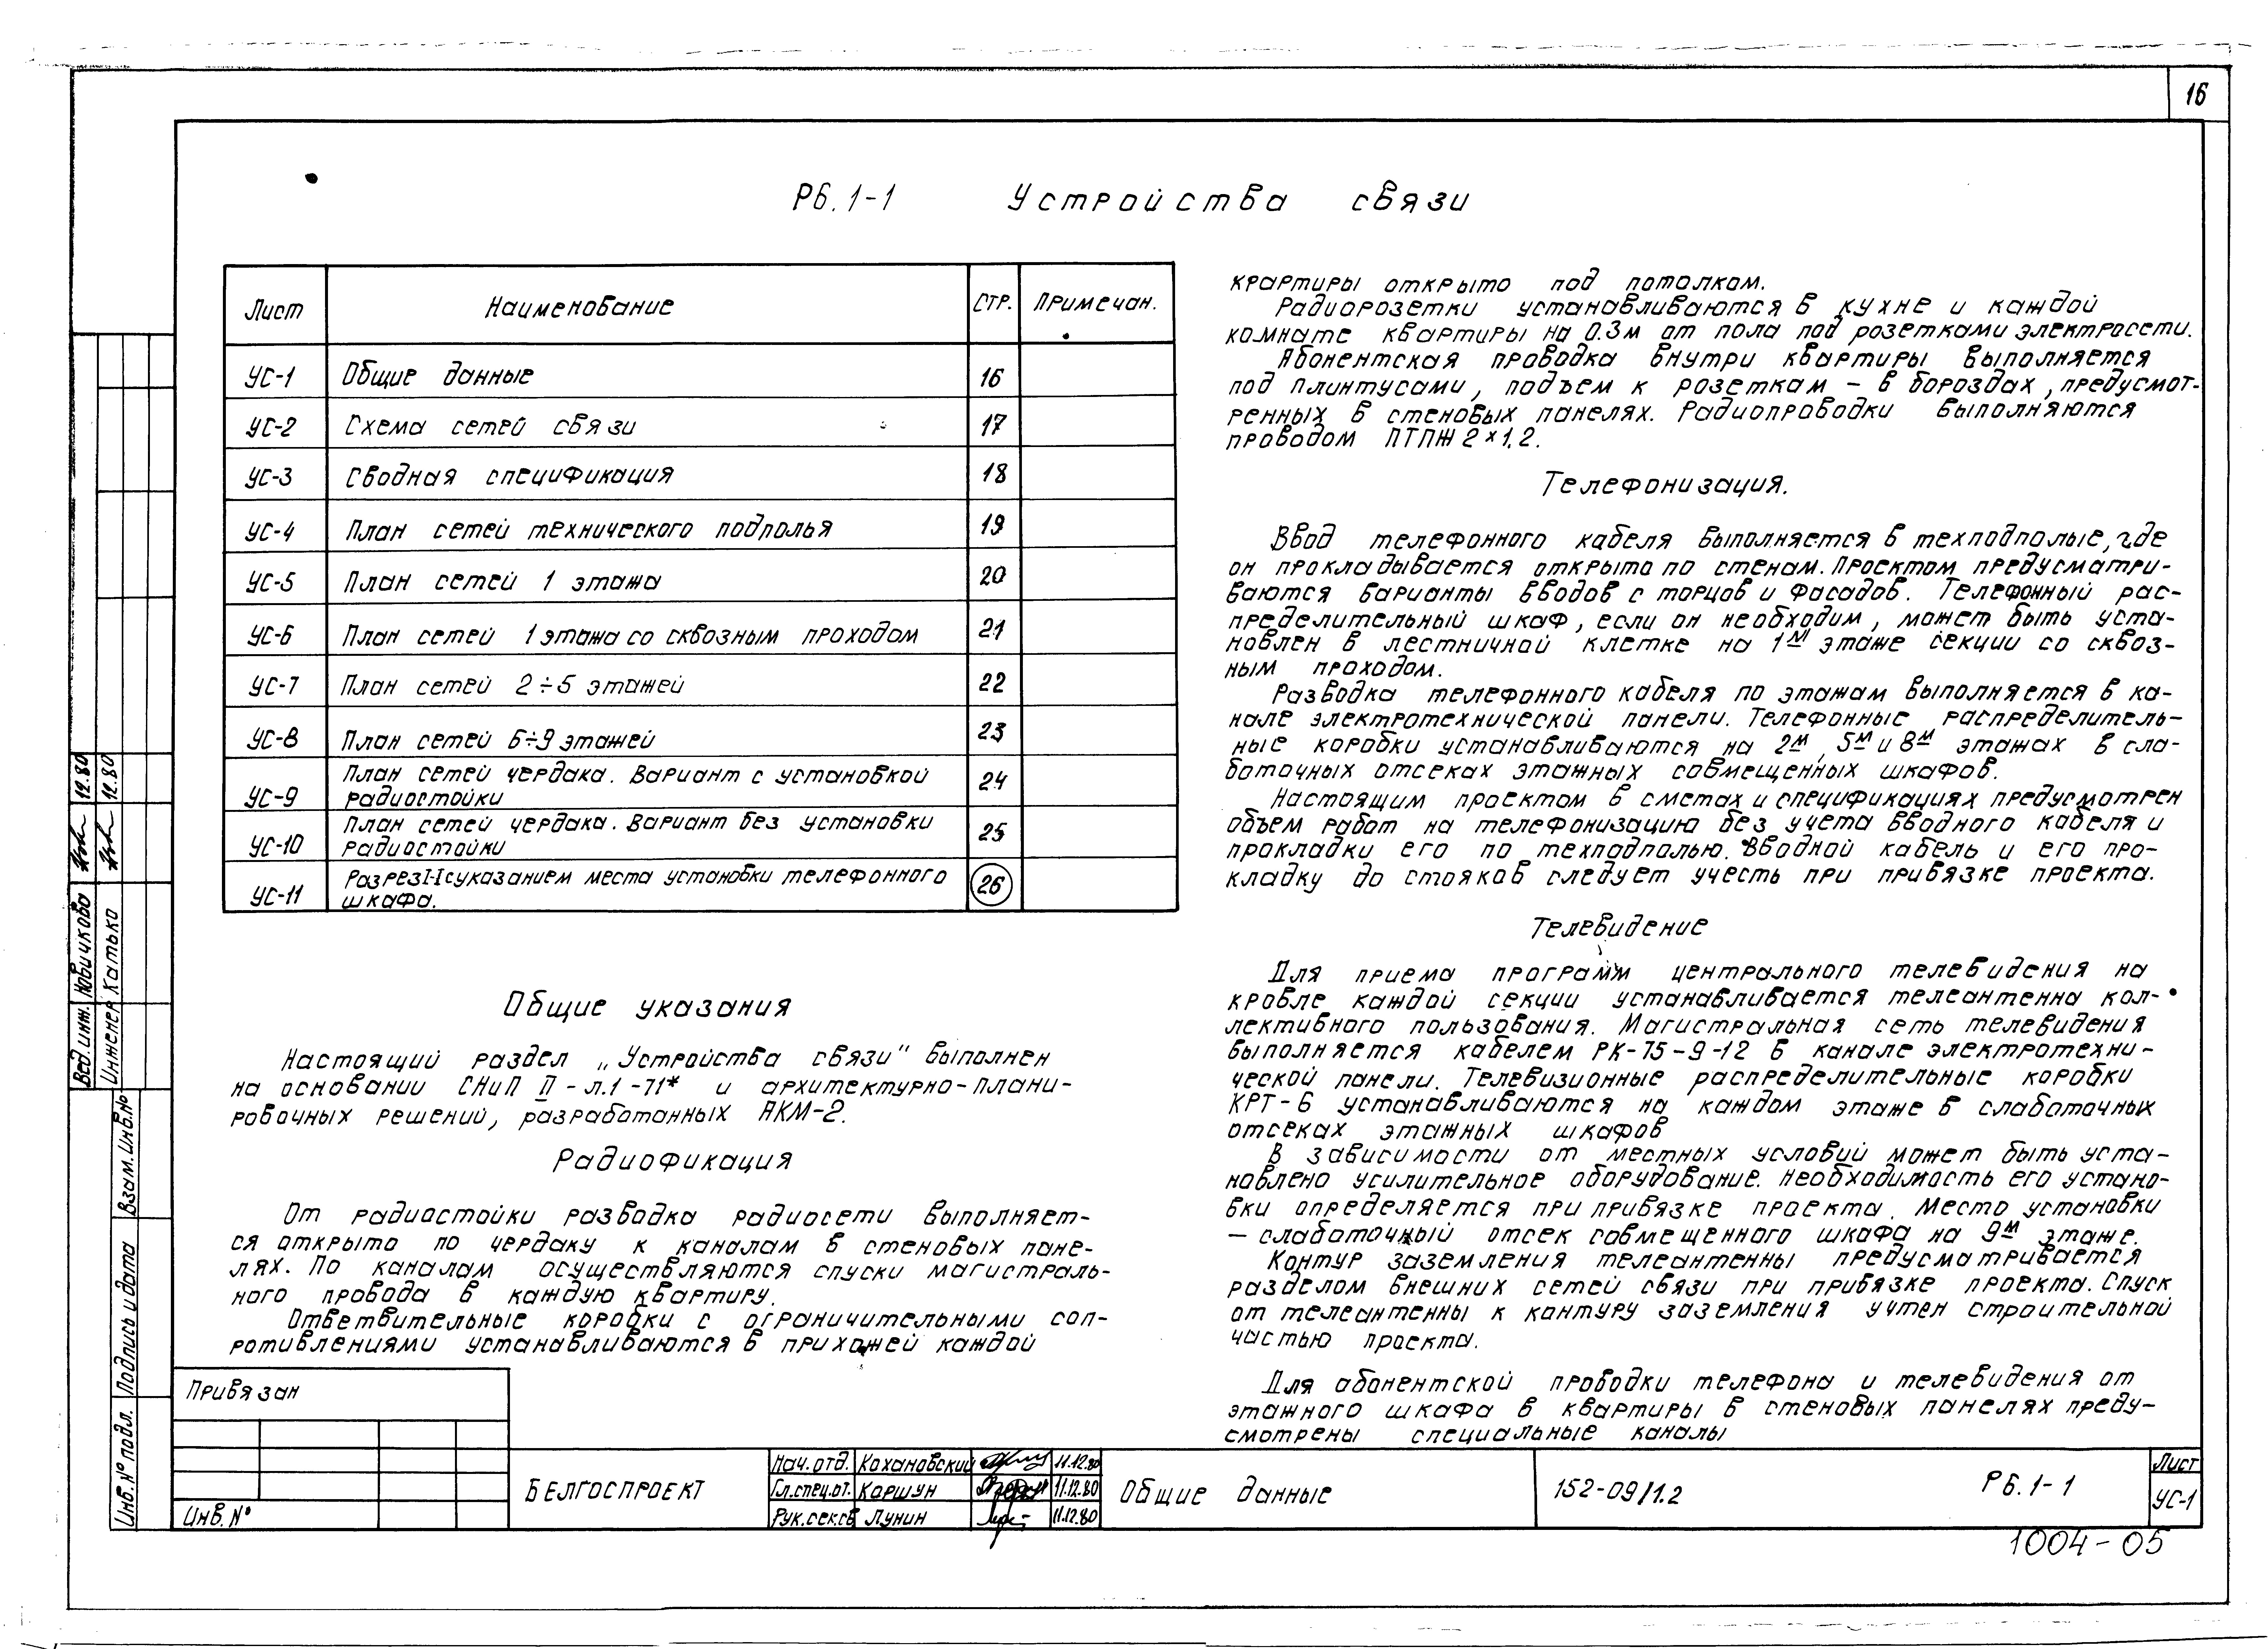 16
Р6.1-1 Устройства связи
Лист Наименование Стр. Примечан.
УС-1 Общие данные 16
УС-2 Схема сетей связи 17
УС-3 Сводная спецификация 18
УС-4 План сетей технического подполья 19
УС-5 План сетей 1 этажа 20
УС-6 План сетей 1 этажа со сквозным проходом 21
УС-7 План сетей 2÷5 этажей 22
УС-8 План сетей 6÷9 этажей 23
УС-9 План сетей чердака. Вариант с установкой 24
радиостойки
УС-10 План сетей чердака. Вариант без установки 25
радиостойки
УС-11 Разрез I-I с указанием места установки телефонного 26
шкафа.
Общие указания
Настоящий раздел „Устройства связи" выполнен
на основании СНиП II-Л.1-71* и архитектурно-плани-
ровочных решений, разработанных АКМ-2.
Радиофикация
От радиостойки разводка радиосети выполняет-
ся открыто по чердаку к каналам в стеновых пане-
лях. По каналам осуществляются спуски магистраль-
ного провода в каждую квартиру.
Ответвительные коробки с ограничительными соп-
ротивлениями устанавливаются в прихожей каждой
квартиры открыто под потолком.
Радиорозетки устанавливаются в кухне и каждой
комнате квартиры на 0.3м от пола под розетками электросети.
Абонентская проводка внутри квартиры выполняется
под плинтусами, подъем к розеткам – в бороздах, предусмот-
ренных в стеновых панелях. Радиопроводки выполняются
проводом ПТПЖ 2×1,2.
Телефонизация.
Ввод телефонного кабеля выполняется в техподполье, где
он прокладывается открыто по стенам. Проектом предусматри-
ваются варианты вводов с торцов и фасадов. Телефонный рас-
пределительный шкаф, если он необходим, может быть уста-
новлен в лестничной клетке на 1м этаже секции со сквоз-
ным проходом.
Разводка телефонного кабеля по этажам выполняется в ка-
нале электротехнической панели. Телефонные распределитель-
ные коробки устанавливаются на 2м, 5м и 8м этажах в сла-
боточных отсеках этажных совмещенных шкафов.
Настоящим проектом в сметах и спецификациях предусмотрен
объем работ на телефонизацию без учета вводного кабеля и
прокладки его по техподполью. Вводной кабель и его про-
кладку до стояков следует учесть при привязке проекта.
Телевидение
Для приема программ центрального телевидения на
кровле каждой секции устанавливается телеантенна кол-
лективного пользования. Магистральная сеть телевидения
выполняется кабелем РК-75-9-12 в канале электротехни-
ческой панели. Телевизионные распределительные коробки
КРТ-6 устанавливаются на каждом этаже в слаботочных
отсеках этажных шкафов
В зависимости от местных условий может быть уста-
новлено усилительное оборудование. Необходимость его установ-
вки определяется при привязке проекта. Место установки
– слаботочный отсек совмещенного шкафа на 9м этаже.
Контур заземления телеантенны предусматривается
разделом внешних сетей связи при привязке проекта. Спуск
от телеантенны к контуру заземления учтен строительной
частью проекта.
Для абонентской проводки телефона и телевидения от
этажного шкафа в квартиры в стеновых панелях преду-
смотрены специальные каналы
Вед. инж. Новичкова 12.80
Инженер Катько 12.80
Взам. Инв. №
Подпись и дата
Инв. № подл.
Привязан
Инв. №
БЕЛГОСПРОЕКТ
Нач. отд. Кохановский 11.12.80
Гл. спец. от. Коршун 11.12.80
Рук. сек. св Лунин 11.12.80
Общие данные
152-09/1.2
Р6.1-1
Лист
УС-1
1004-05